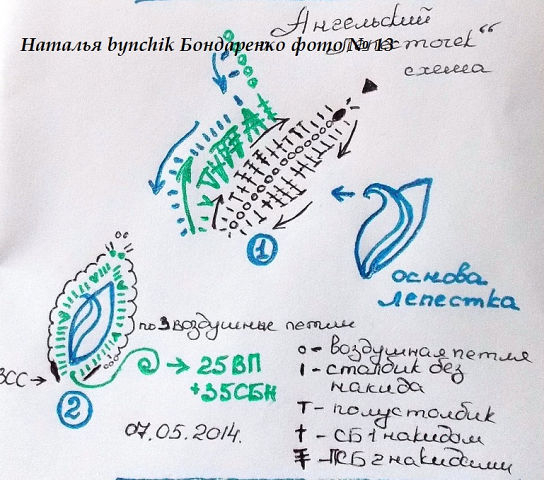 „Ангельский
лепесточек“
схема
Наталья bynchik Бондаренко фото № 13
1
основа
лепестка
по 3 воздушные петли
3СС →
→ 25 ВП
+ 35 СБН
2
07.05.2014.
о - воздушная петля
ı - столбик без
накида
т - полустолбик
† - СБ 1 накидом
СБ 2 накидами